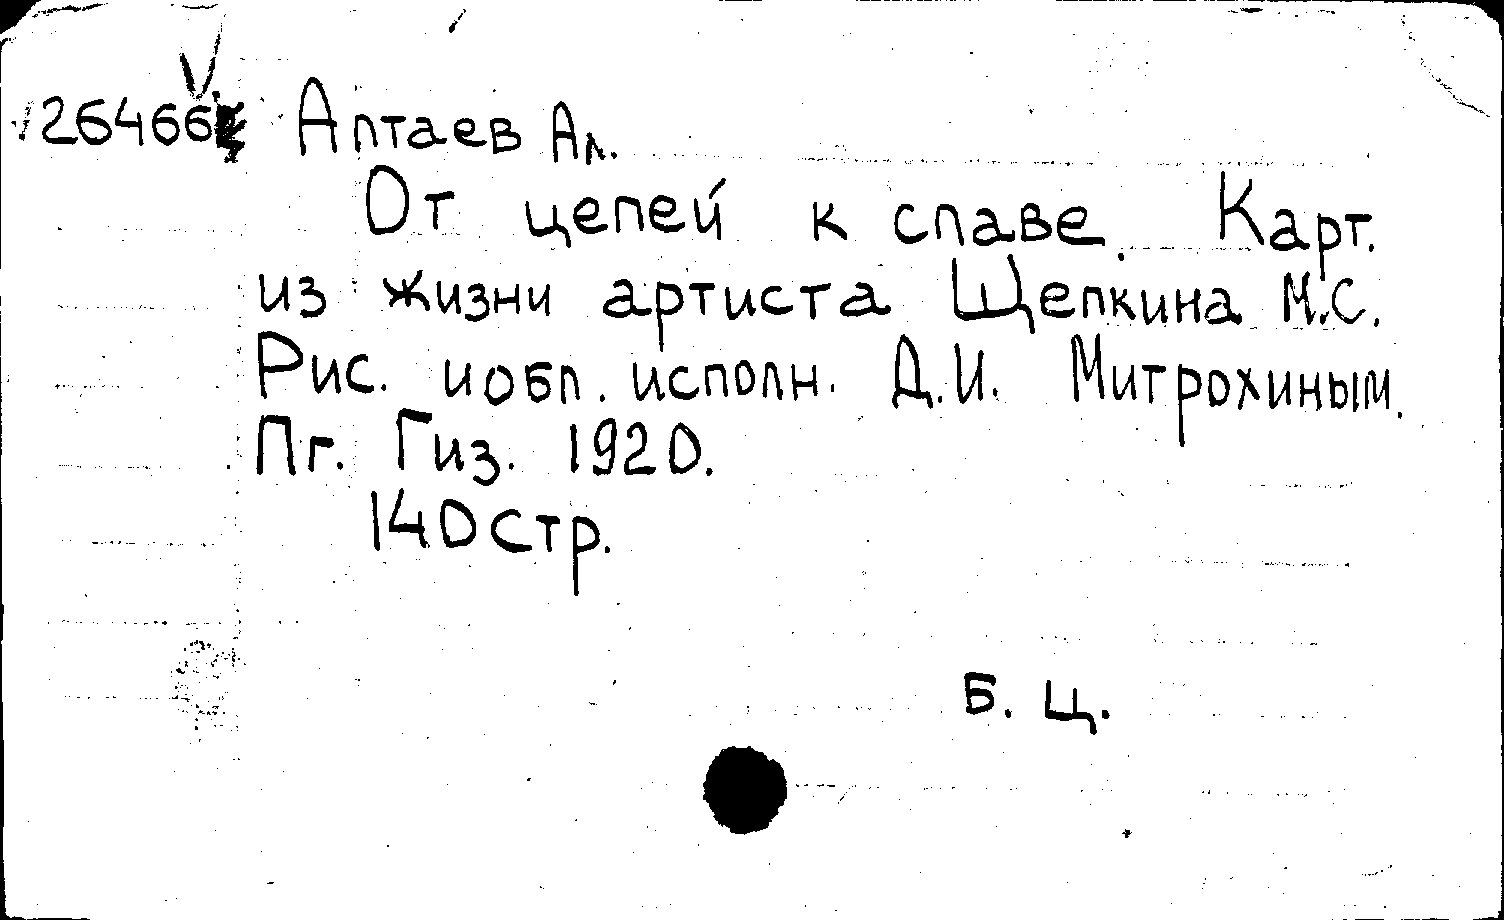 26466 Алтаев Ал.
От цепей к славе. Карт.
из жизни артиста Щепкина М.С.
Рис. и обл. исполн. Д.И. Митрохиным.
Пг. Гиз. 1920.
140 стр.
Б. Ц.